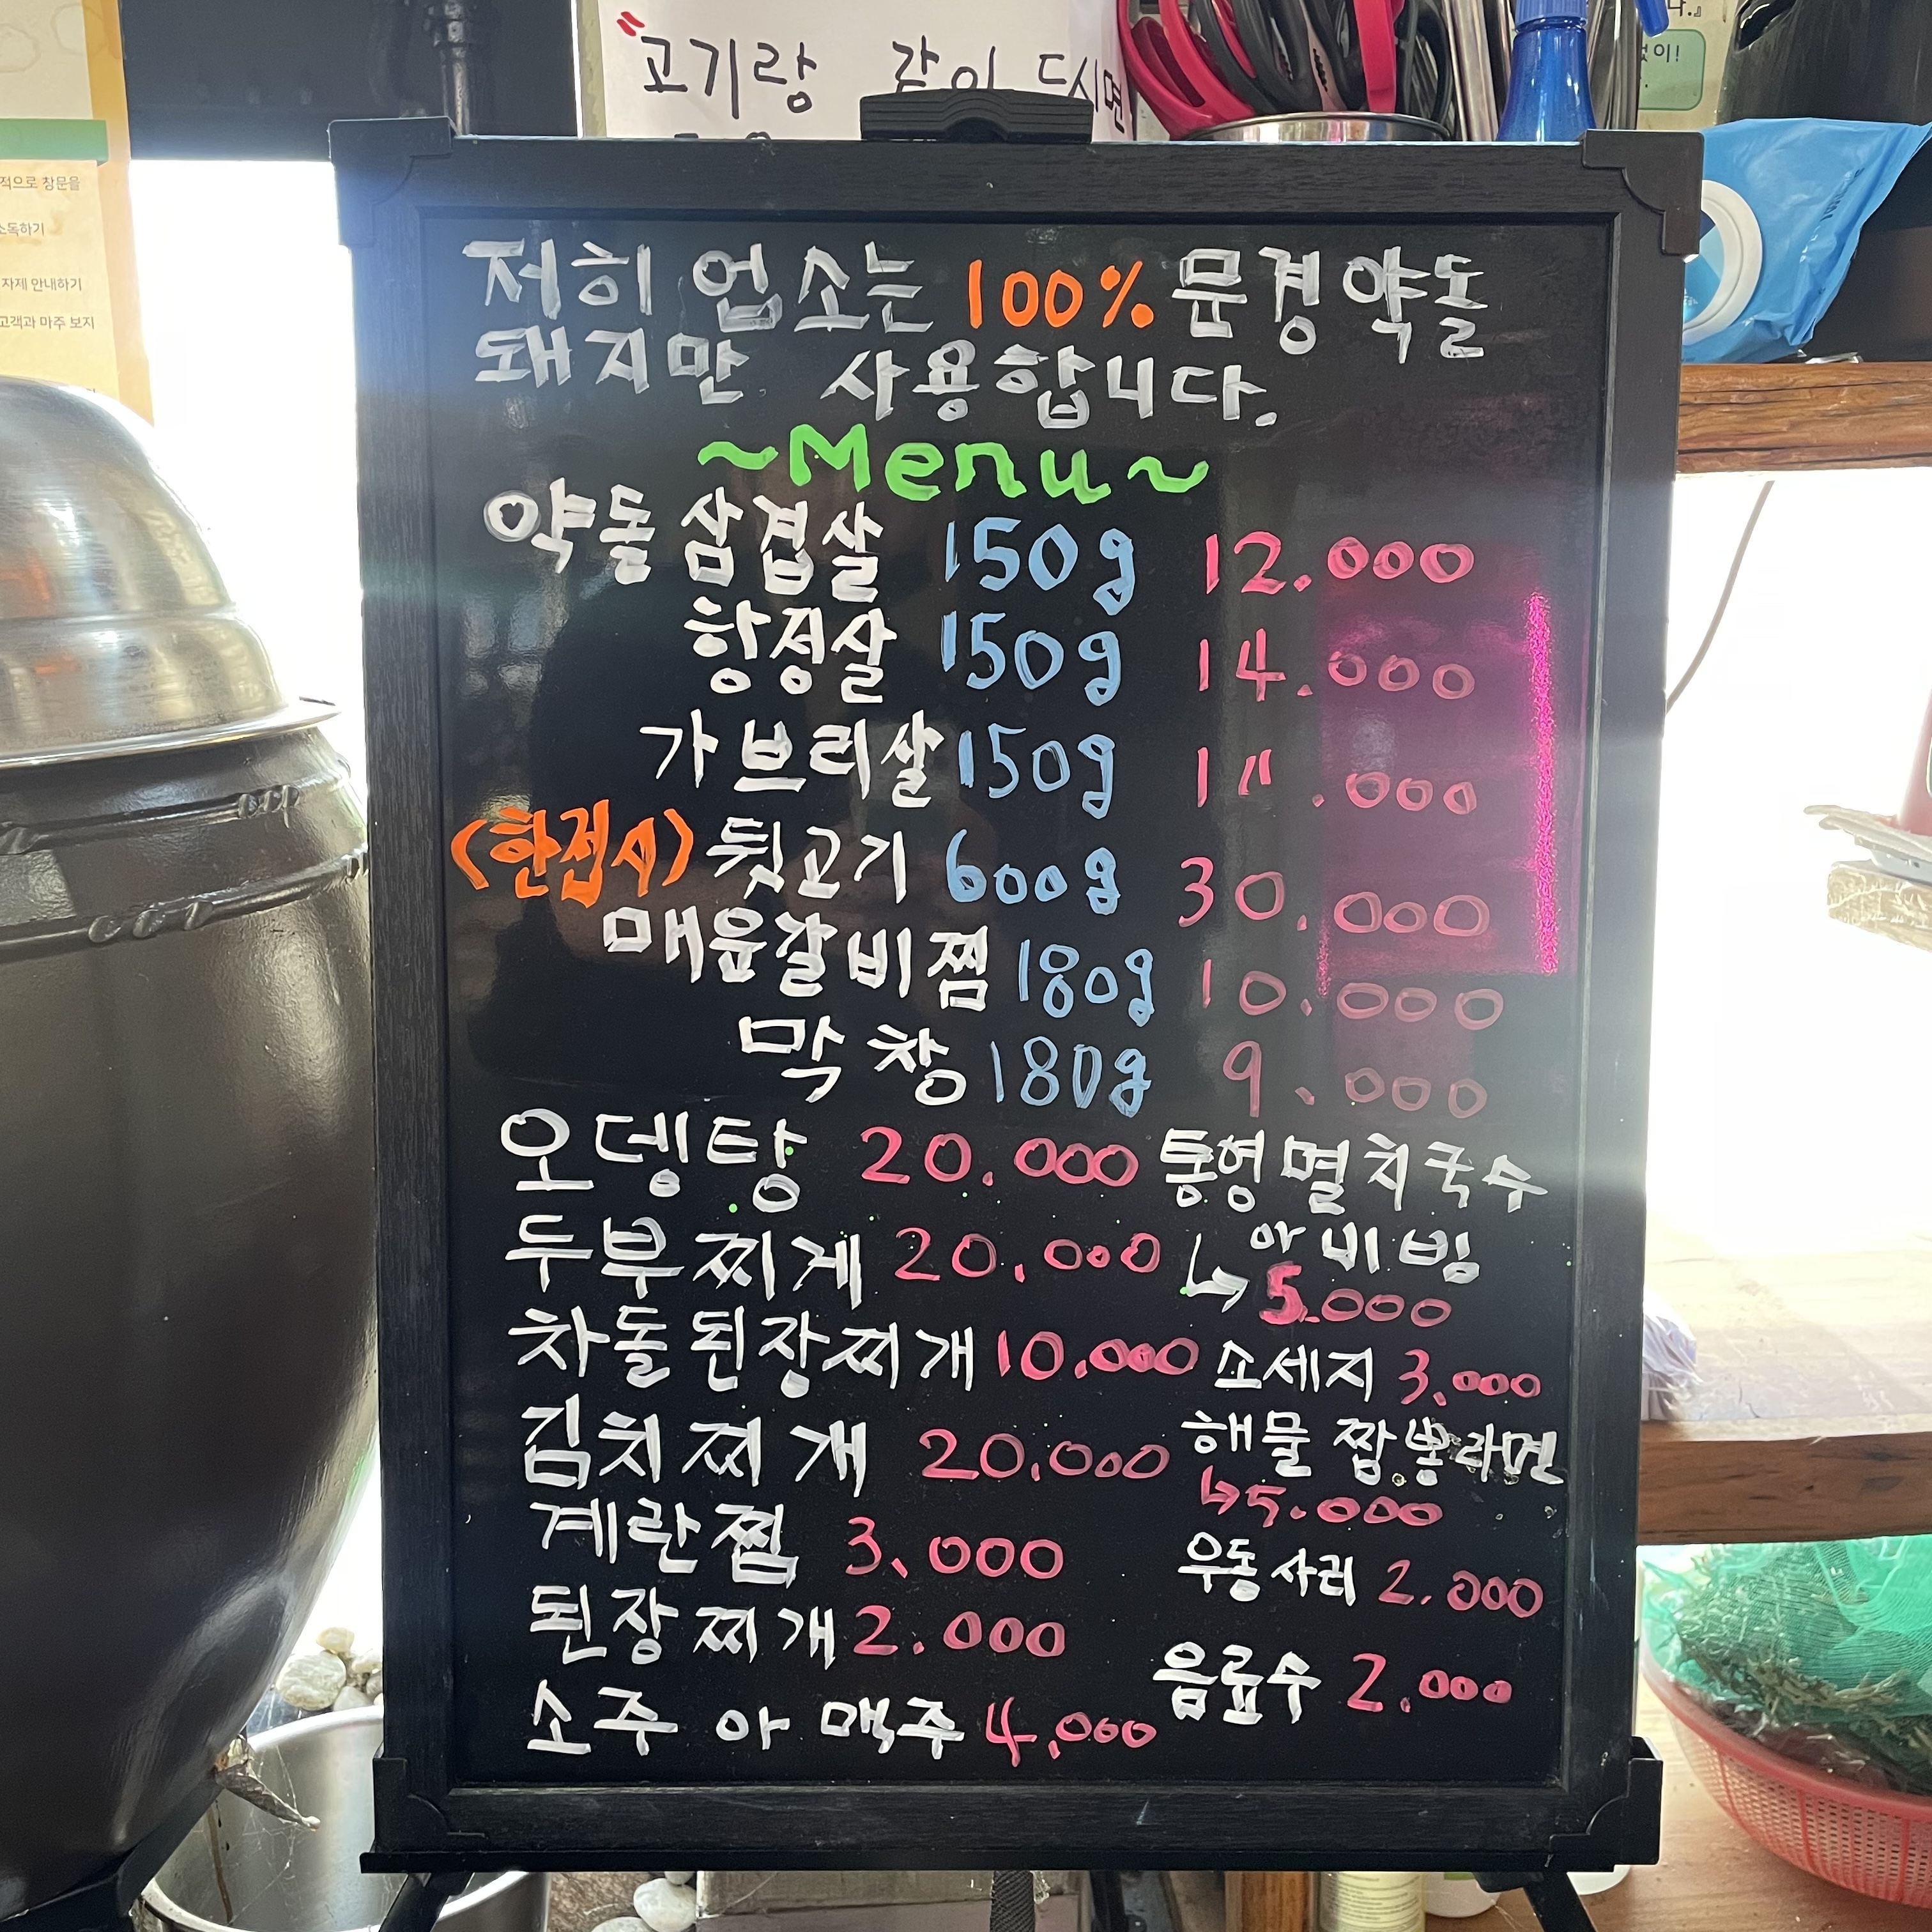 "고기랑 같이 드시면
저희 업소는 100% 문경약돌
돼지만 사용합니다.
~Menu~
약돌삼겹살 150g 12.000
항정살 150g 14.000
가브리살 150g 1〃.000
(한접시) 뒷고기 600g 30.000
매운갈비찜 180g 10.000
막창 180g 9.000
오뎅탕 20.000
두부찌게 20.000
차돌된장찌개 10.000
김치찌개 20.000
계란찜 3.000
된장찌개 2.000
소주 아 맥주 4,000
통영멸치국수
아 비빔
↳ 5.000
소세지 3.000
해물 짬뽕라면
↳5.000
우동사리 2.000
음료수 2.000
적으로 창문을
소독하기
자제 안내하기
고객과 마주 보지